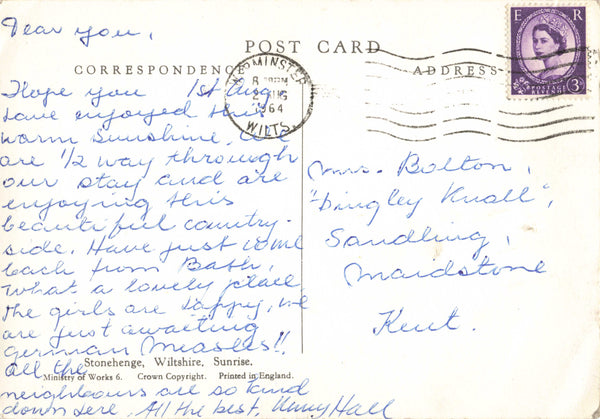 Dear you,
POST CARD
CORRESPONDENCE
ADDRESS
E R
POSTAGE
3D
WARMINSTER
1964
WILTS.
1st Aug
Hope you
have enjoyed this
warm sunshine. We
are 1/2 way through
our stay and are
enjoying this
beautiful country-
side. Have just come
back from Bath,
what a lovely place
the girls are happy, we
are just awaiting
german measles!!
all the
neighbours are so kind
down here. All the best. Hall
Mrs. Bolton,
"Dingley Knoll",
Sandling,
Maidstone
Kent.
Stonehenge, Wiltshire, Sunrise.
Ministry of Works 6. Crown Copyright. Printed in England.